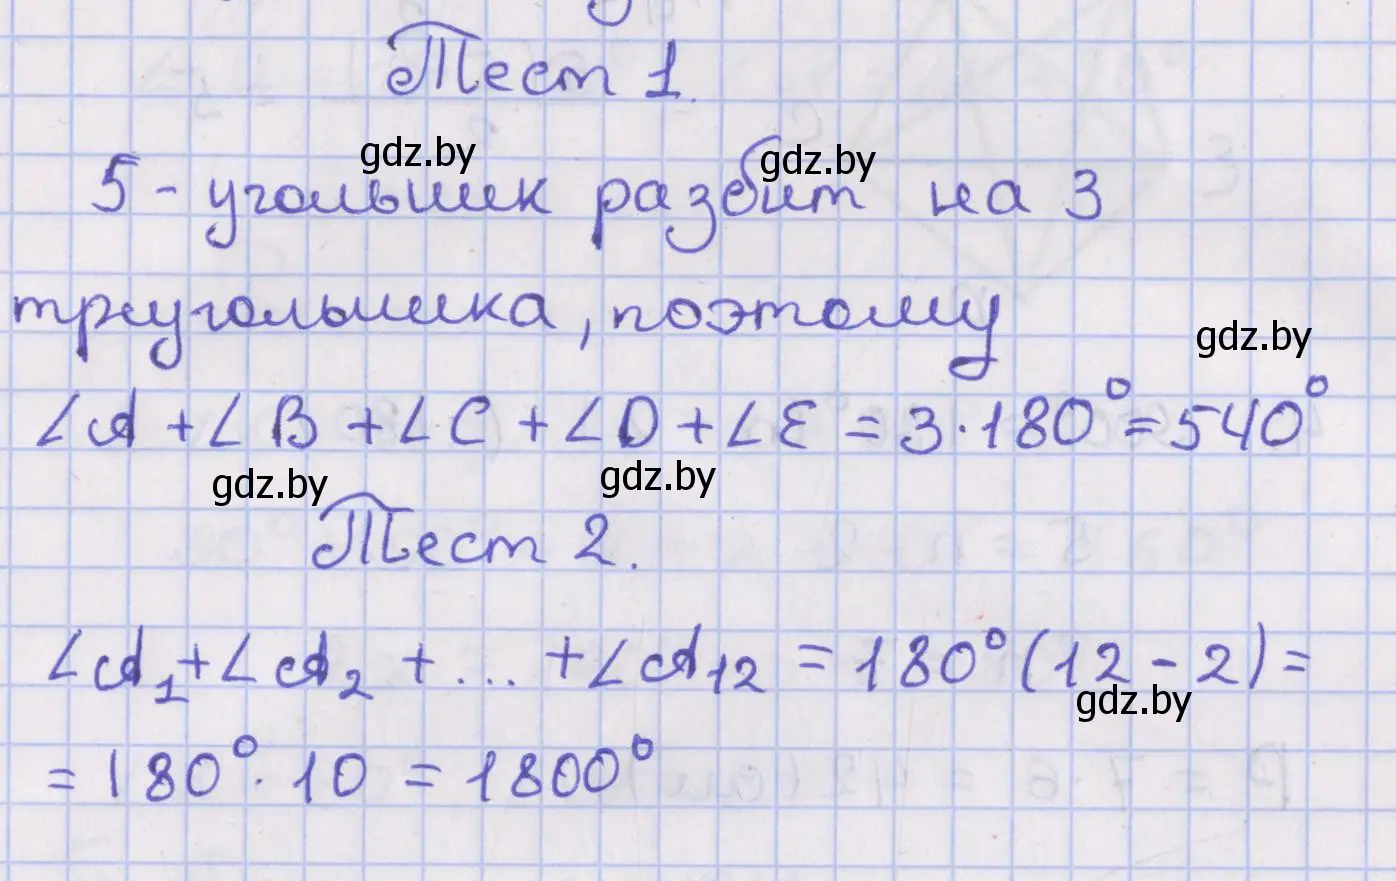 Тест 1.
gdz.by gdz.by
5-угольник разбит на 3
треугольника, поэтому
gdz.by
∠A + ∠B + ∠C + ∠D + ∠E = 3·180° = 540°
gdz.by gdz.by
Тест 2.
∠A₁ + ∠A₂ + ... + ∠A₁₂ = 180°(12 - 2) =
gdz.by
= 180°·10 = 1800°